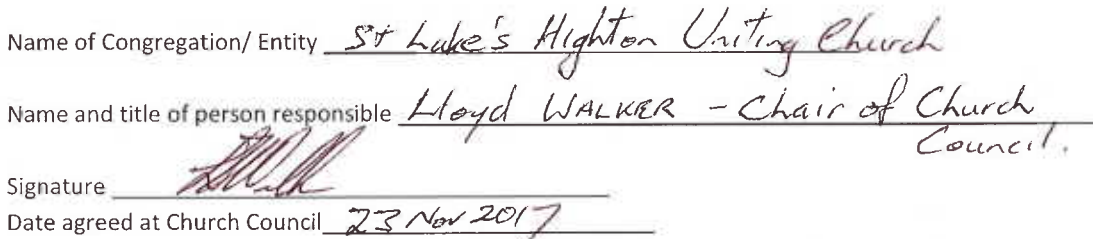 Name of Congregation/ Entity St Luke's Highton Uniting Church
Name and title of person responsible Lloyd WALKER - Chair of Church
Council.
Signature
Date agreed at Church Council 23 Nov 2017